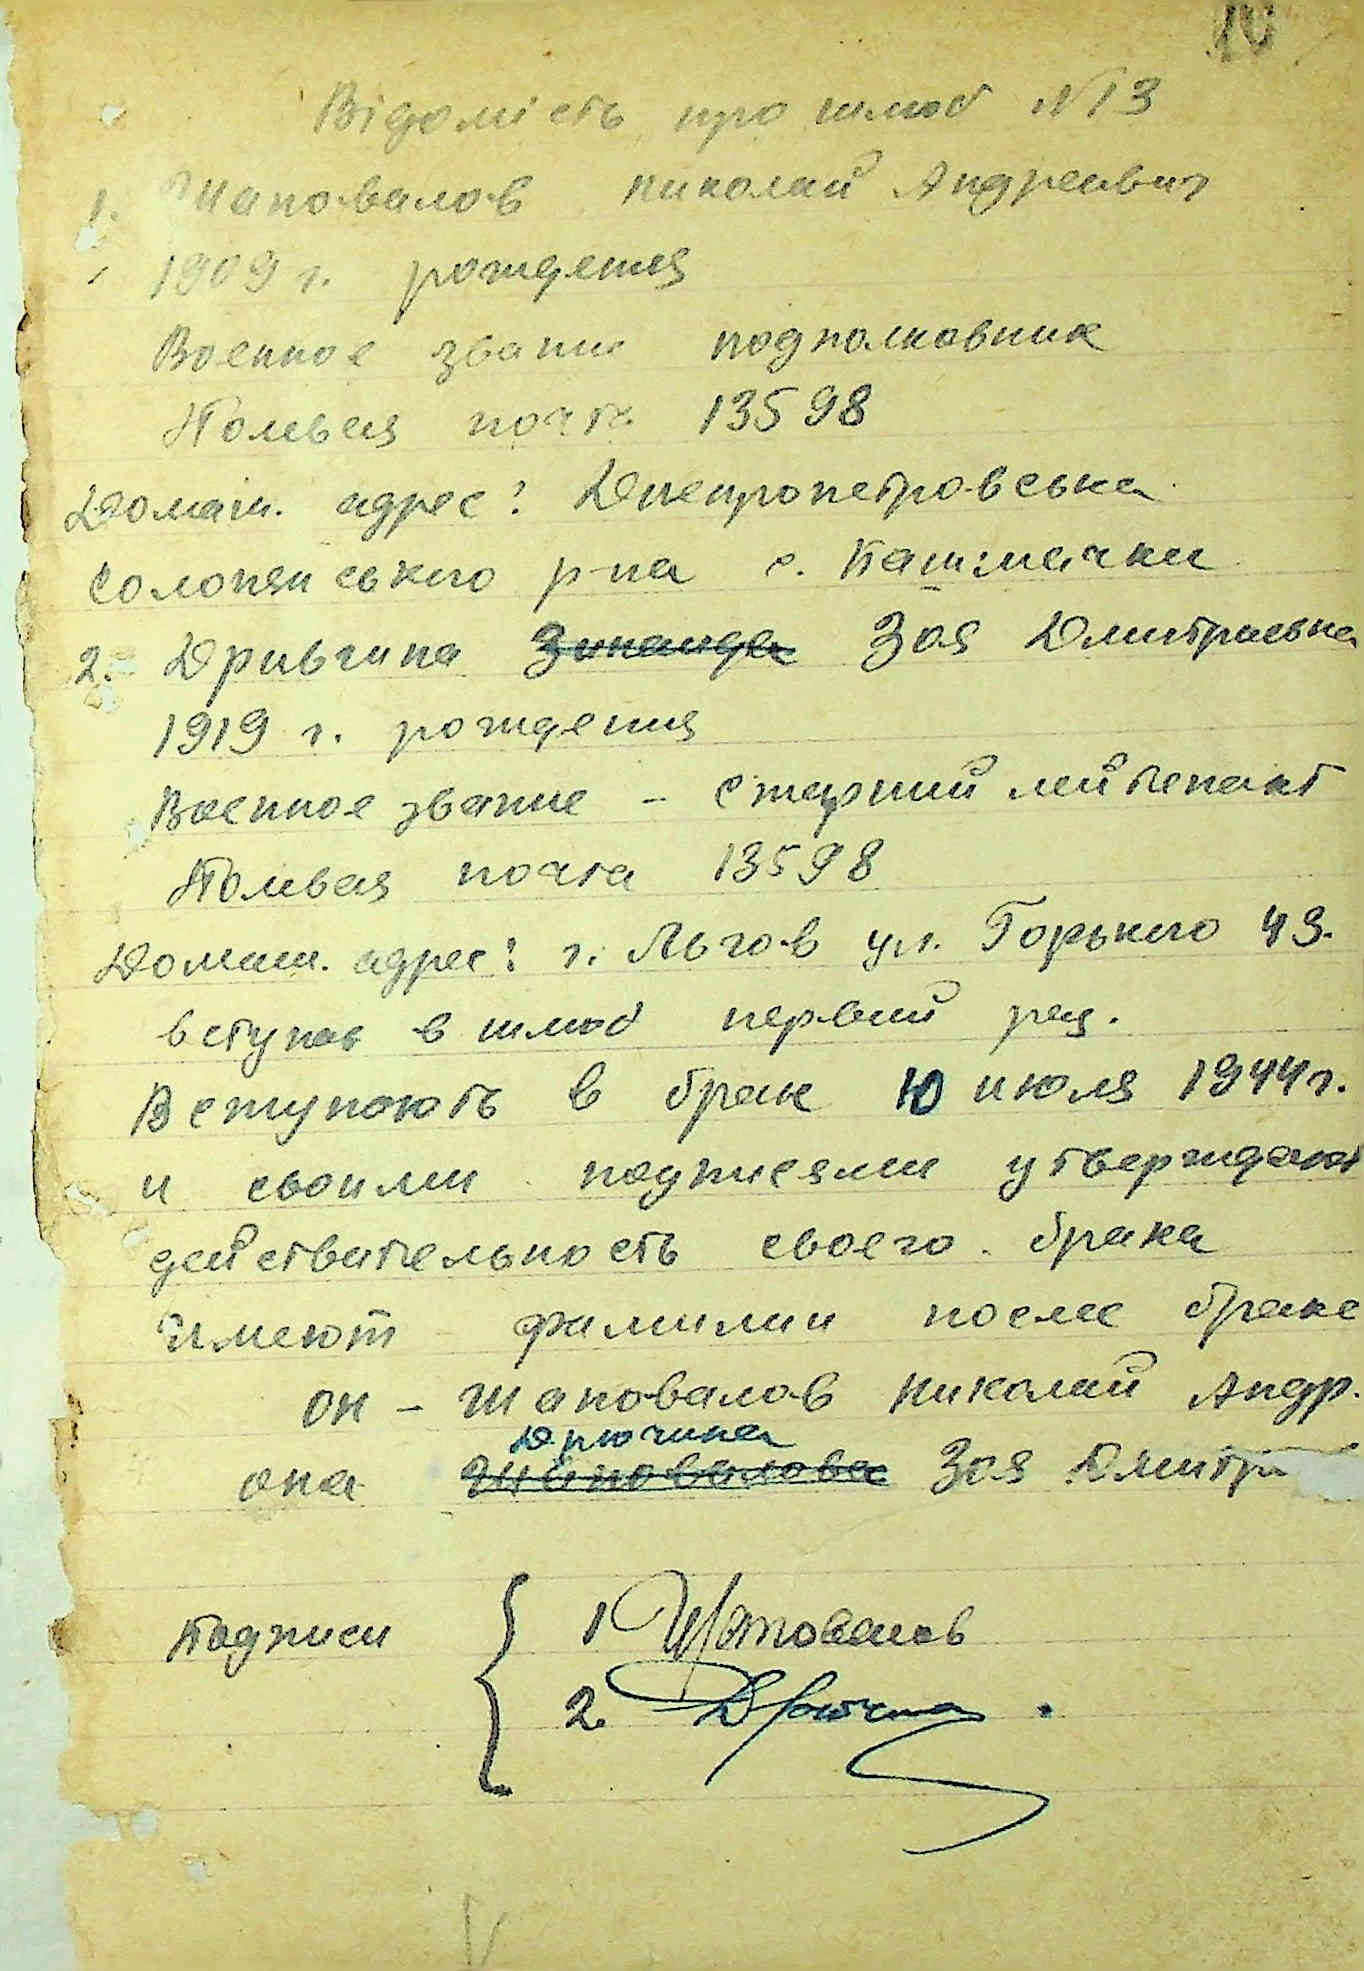 10
Відомість про шлюб N 13
1. Шаповалов Николай Андреевич
1909 г. рождения
Военное звание подполковник
Полевая почта 13598
Домаш. адрес: Днепропетровська
Солонянського р-на с. Башмачки
2. Дрывчина Зинаида Зоя Дмитриевна
1919 г. рождения
Военное звание - старший лейтенант
Полевая почта 13598
Домаш. адрес: г. Льгов ул. Горького 43.
вступає в шлюб первий раз.
Вступають в брак 10 июля 1944 г.
и своими подписями утверждают
действительность своего брака
Имеют фамилии после брака
он - Шаповалов Николай Андр.
Дрючина
она Шаповалова Зоя Дмитри
Подписи 1 Шаповалов
2. Дрючина